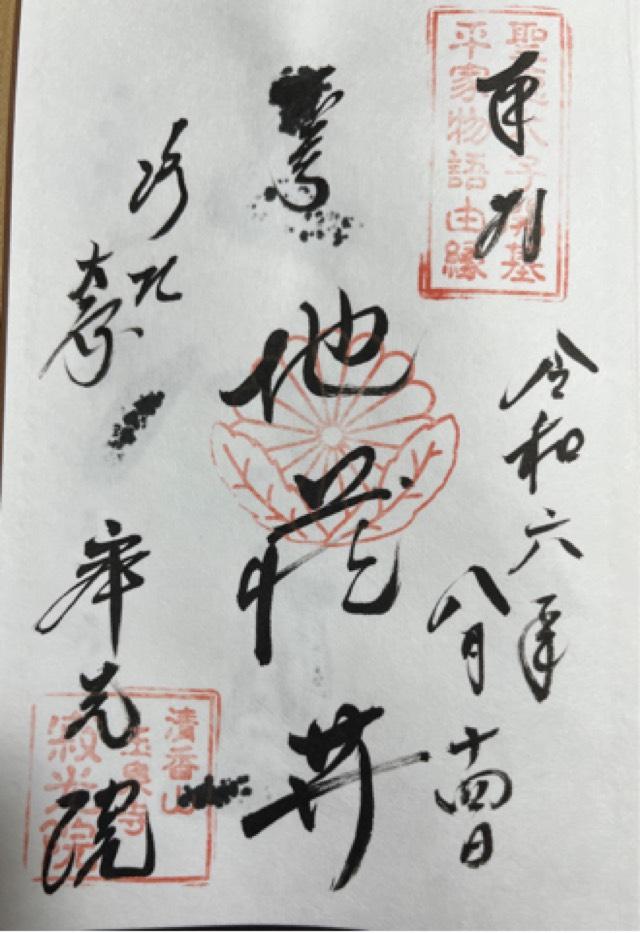 聖徳太子開基
平家物語由縁
奉拝
令和六年
八月十四日
地蔵
洛北
大原
寂光院
清香山
玉泉寺
寂光院